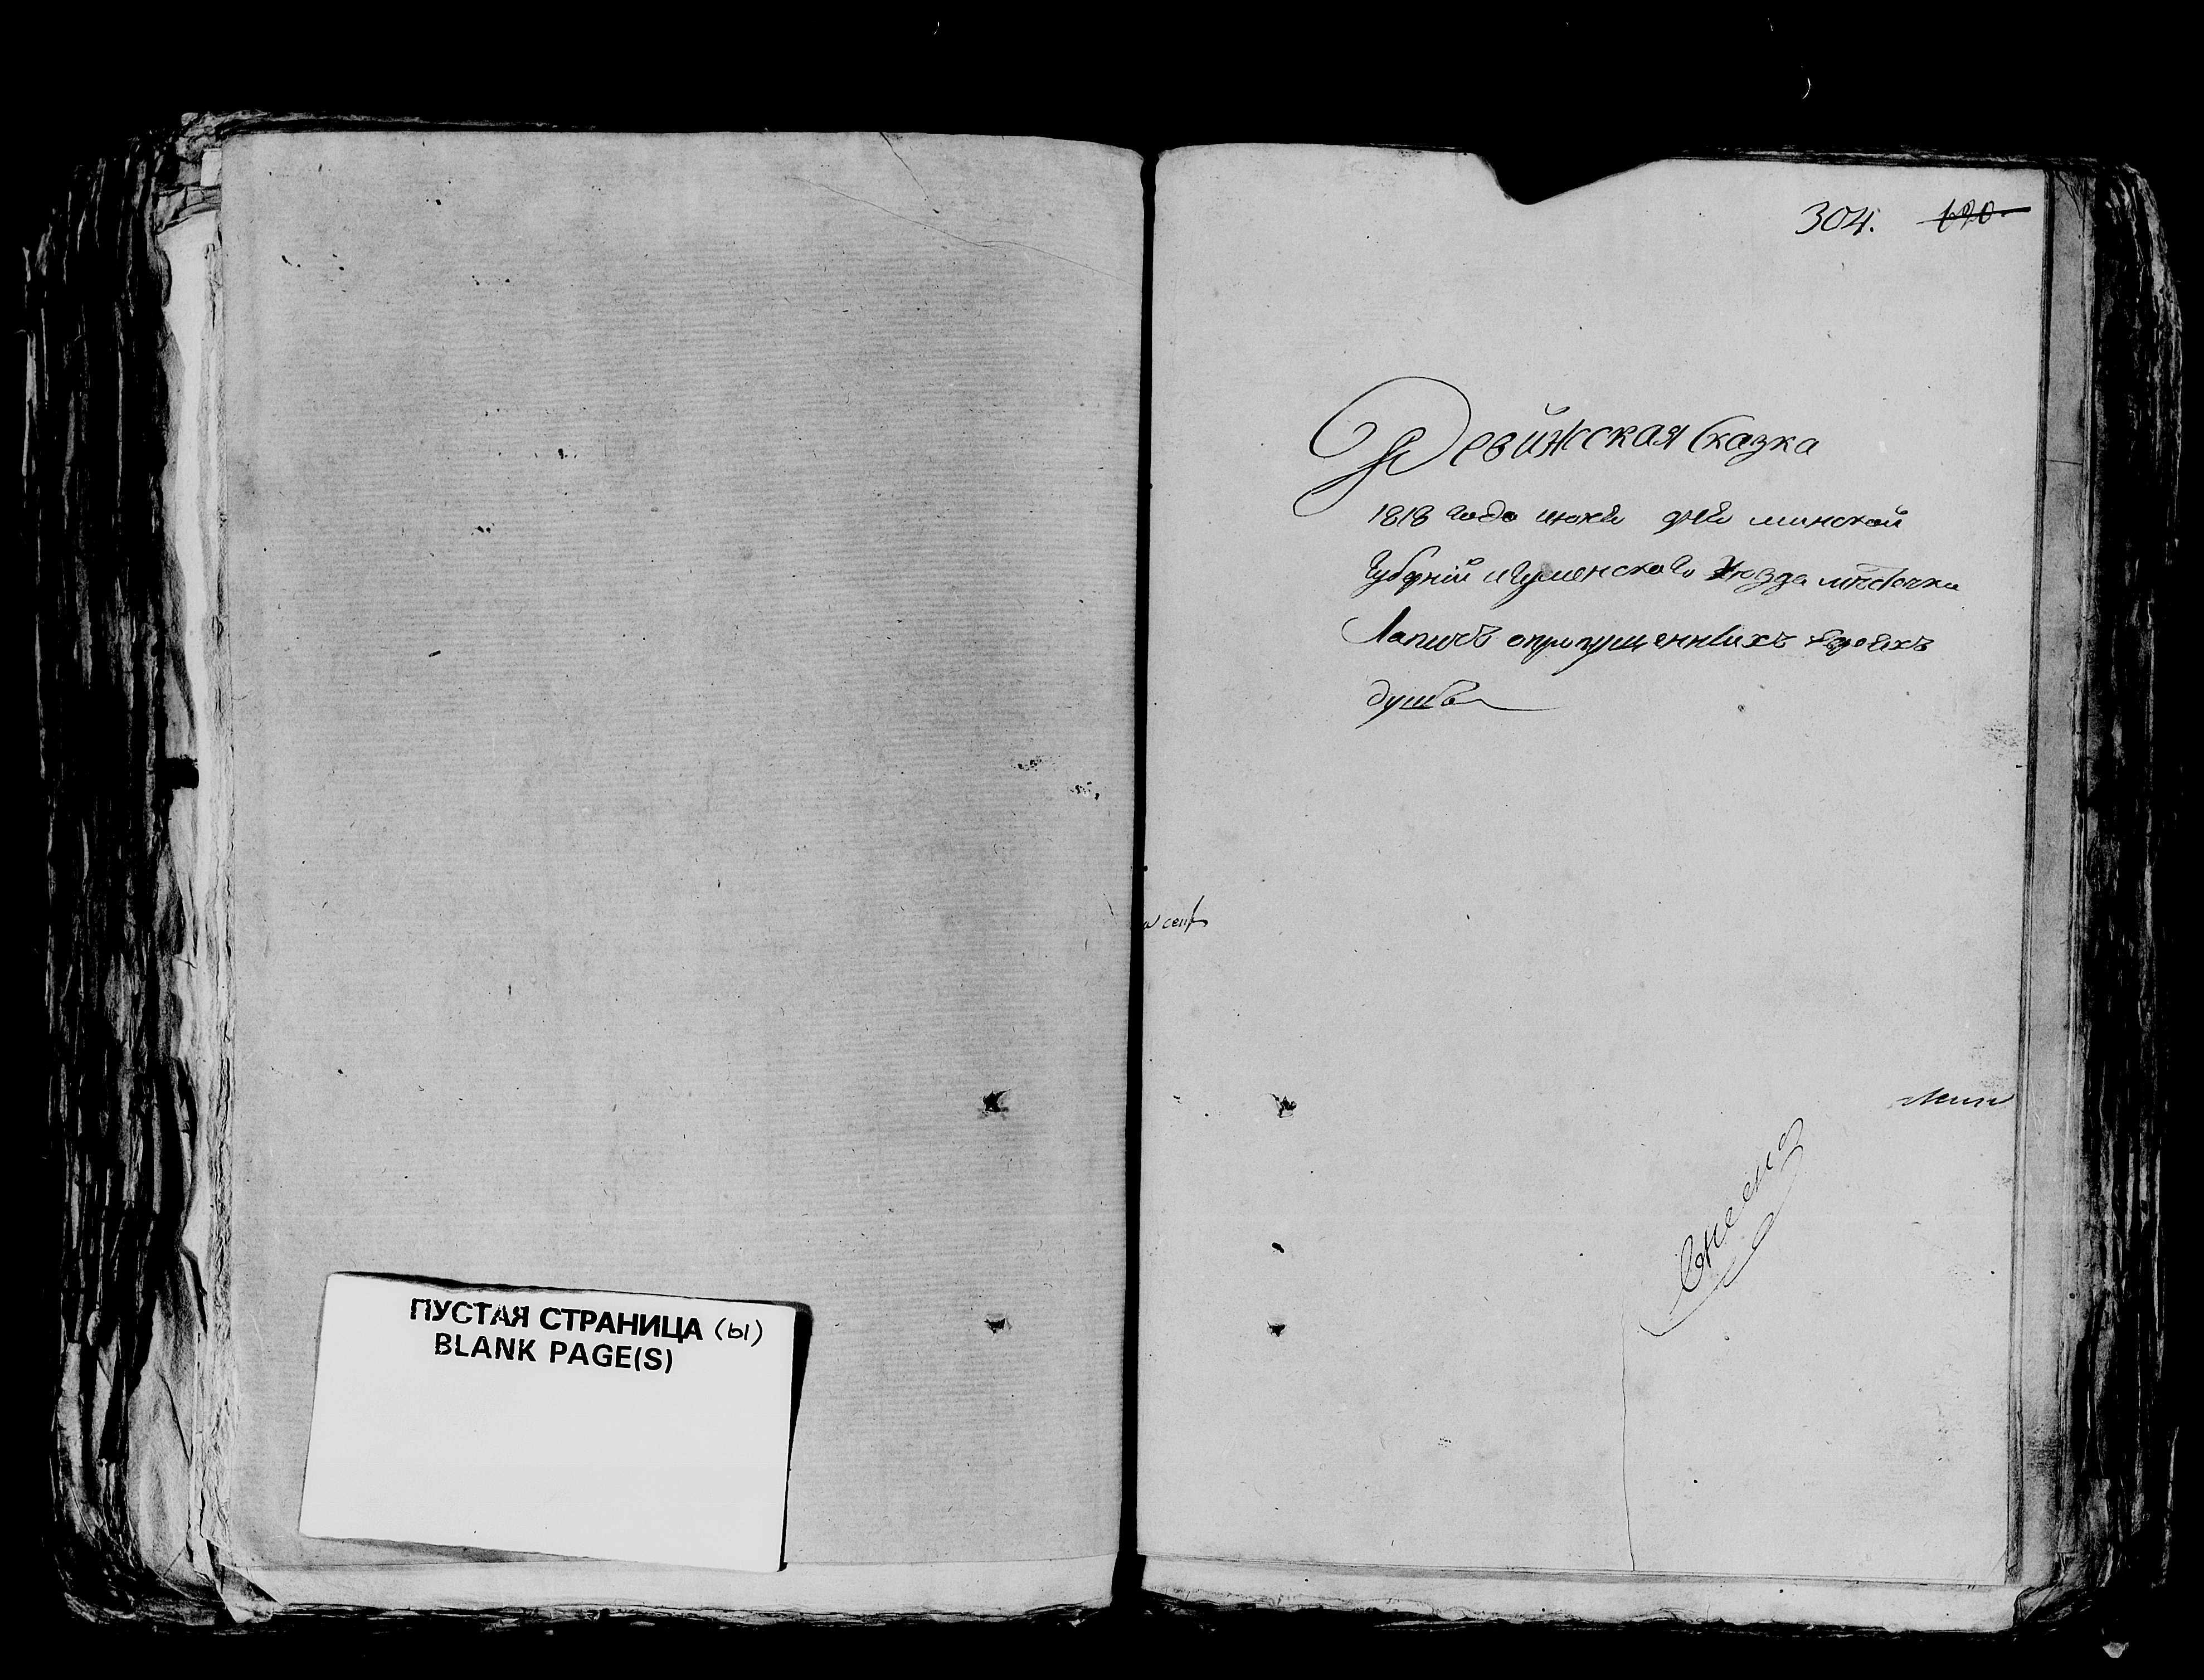 ПУСТАЯ СТРАНИЦА (ы)
BLANK PAGE(S)
304. 190
Ревижская Сказка
1818 года июня дня минской
Губерній игуменского Уюзда мѣстечка
Лапичъ опропущенныхъ евреяхъ
душъ
внесена